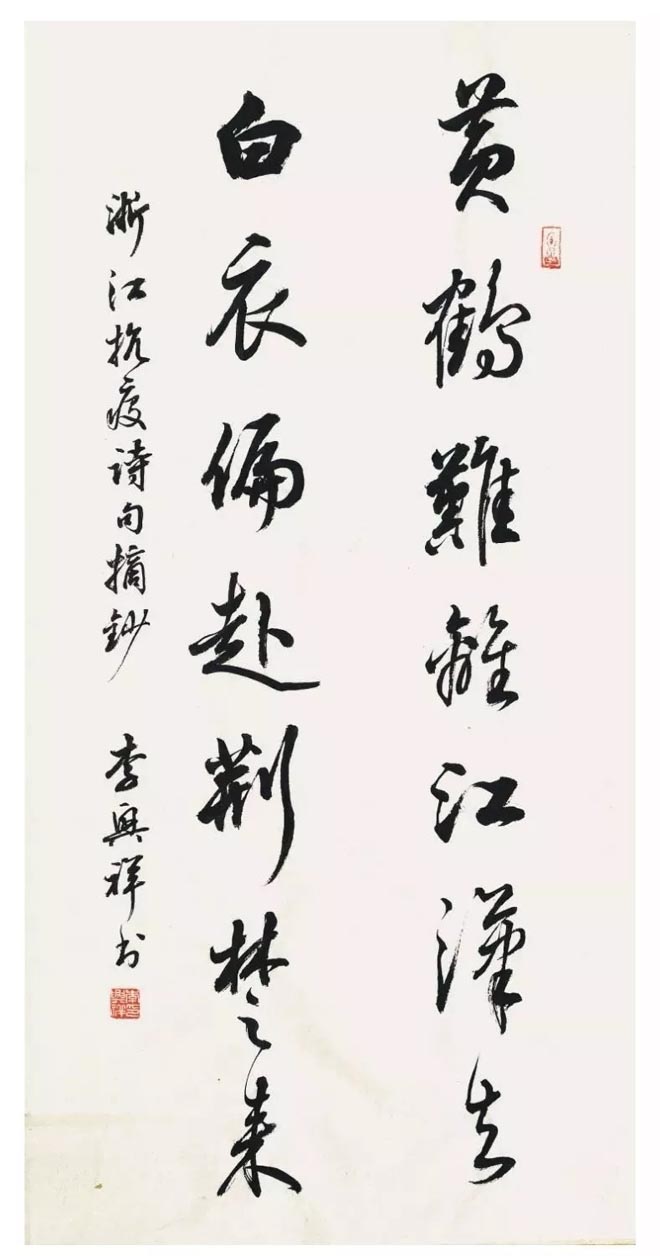 黄鹤難離江漢去
白衣偏赴荆楚来
浙江抗疫诗句摘鈔 李興祥书